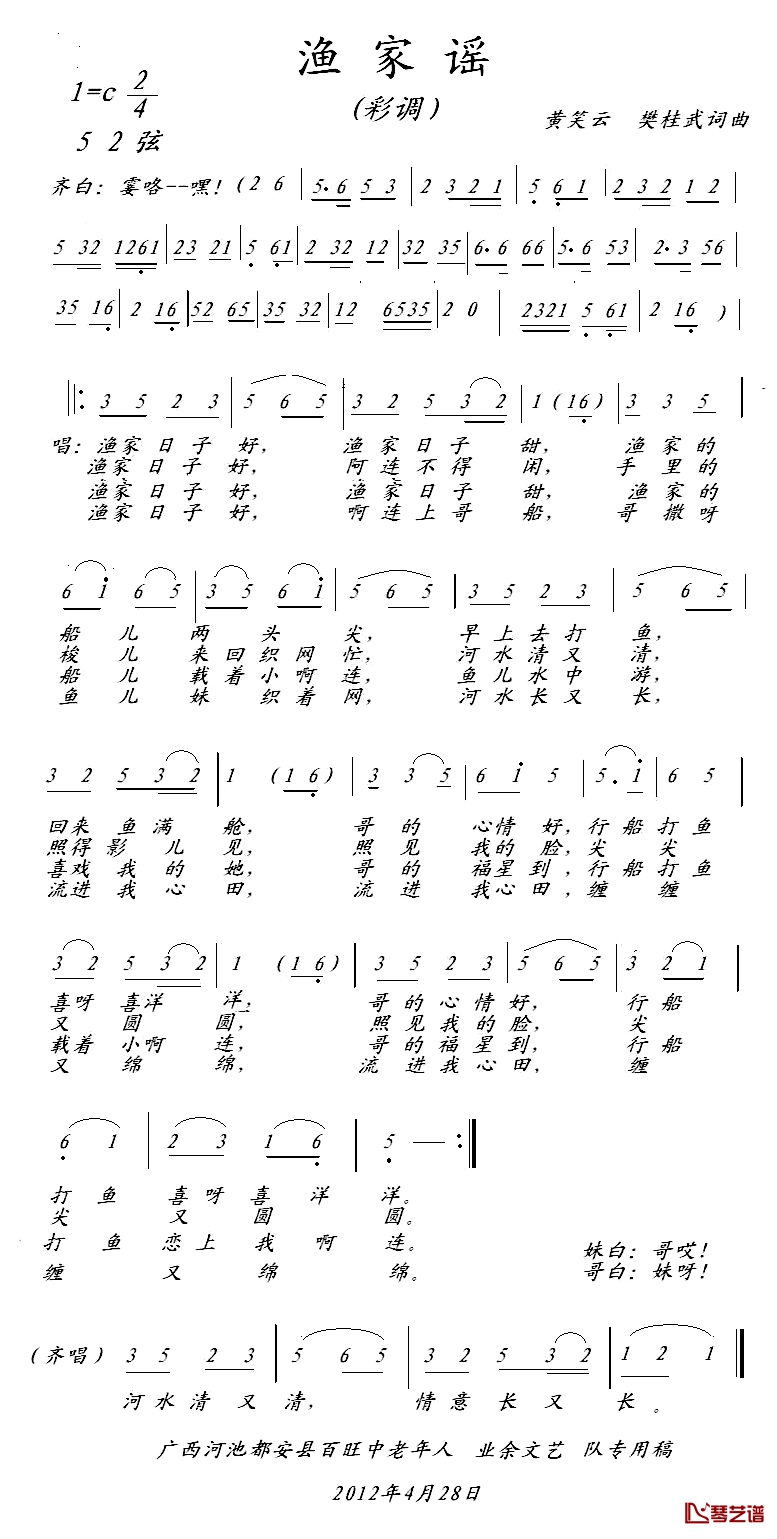 渔家谣
1=c 2/4
(彩调)
黄笑云 樊桂武词曲
5 2弦
齐白：霎咯--嘿！(2 6 | 5·6 5 3 | 2 3 2 1 | 5 6 1 | 2 3 2 1 2 |
5 32 1261 | 23 21 | 5 61 | 2 32 12 | 32 35 | 6·6 66 | 5·6 53 | 2·3 56 |
35 16 | 2 16 | 52 65 | 35 32 | 12 6535 | 2 0 | 2321 5 61 | 2 16 ) |
‖: 3 5 2 3 | 5 6 5 | 3 2 5 3 2 | 1 (16) | 3 3 5 |
唱：渔家日子好， 渔家日子甜， 渔家的
渔家日子好， 阿连不得闲， 手里的
渔家日子好， 渔家日子甜， 渔家的
渔家日子好， 啊连上哥船， 哥撒呀
6 i 6 5 | 3 5 6 i | 5 6 5 | 3 5 2 3 | 5 6 5 |
船儿两头尖， 早上去打鱼，
梭儿来回织网忙， 河水清又清，
船儿载着小啊连， 鱼儿水中游，
鱼儿妹织着网， 河水长又长，
3 2 5 3 2 | 1 (1 6) | 3 3 5 | 6 i 5 | 5·i | 6 5 |
回来鱼满舱， 哥的心情好，行船打鱼
照得影儿见， 照见我的脸，尖尖
喜戏我的她， 哥的福星到，行船打鱼
流进我心田， 流进我心田，缠缠
3 2 5 3 2 | 1 (1 6) | 3 5 2 3 | 5 6 5 | 3 2 1 |
喜呀喜洋洋； 哥的心情好， 行船
又圆圆， 照见我的脸， 尖
载着小啊连， 哥的福星到， 行船
又绵绵， 流进我心田， 缠
6 1 | 2 3 1 6 | 5 — :‖
打鱼喜呀喜洋洋。
尖又圆圆。
打鱼恋上我啊连。 妹白：哥哎！
缠又绵绵。 哥白：妹呀！
(齐唱) 3 5 2 3 | 5 6 5 | 3 2 5 3 2 | 1 2 1 ‖
河水清又清， 情意长又长。
广西河池都安县百旺中老年人 业余文艺 队专用稿
2012年4月28日
琴艺谱